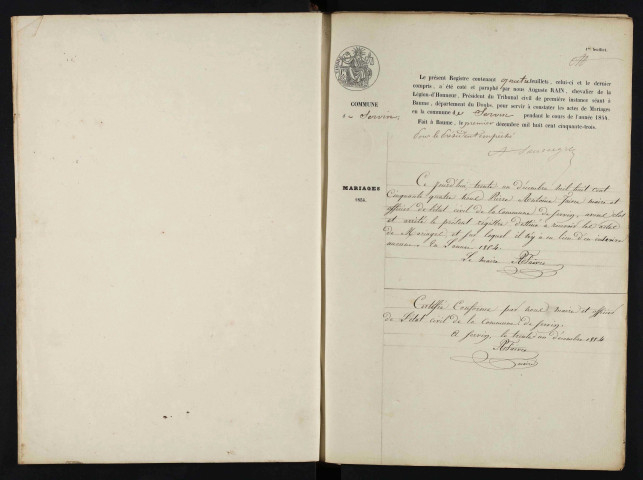 1er feuillet.
Le présent Registre contenant quatre feuillets, celui-ci et le dernier
compris, a été coté et paraphé par nous Auguste RAIN, chevalier de la
Légion-d'Honneur, Président du Tribunal civil de première instance séant à
Baume, département du Doubs, pour servir à constater les actes de Mariages
en la commune de Servin pendant le cours de l'année 1854.
Fait à Baume, le premier décembre mil huit cent cinquante-trois.
Pour le Président empêché
COMMUNE
de Servin
MARIAGES
1854.
Ce jourd'hui trente un décembre mil huit cent
Cinquante quatre nous Pierre maire et
officier de l'état civil de la Commune de servin, avons clos
et arrêté le présent registre destiné à recevoir les actes
de Mariages et sur lequel il n'y a eu lieu d'en inscrire
aucun en l'année 1854.
Le maire
Certifié Conforme par nous maire et officier
de l'état civil de la Commune de servin,
A servin, le trente un décembre 1854
maire